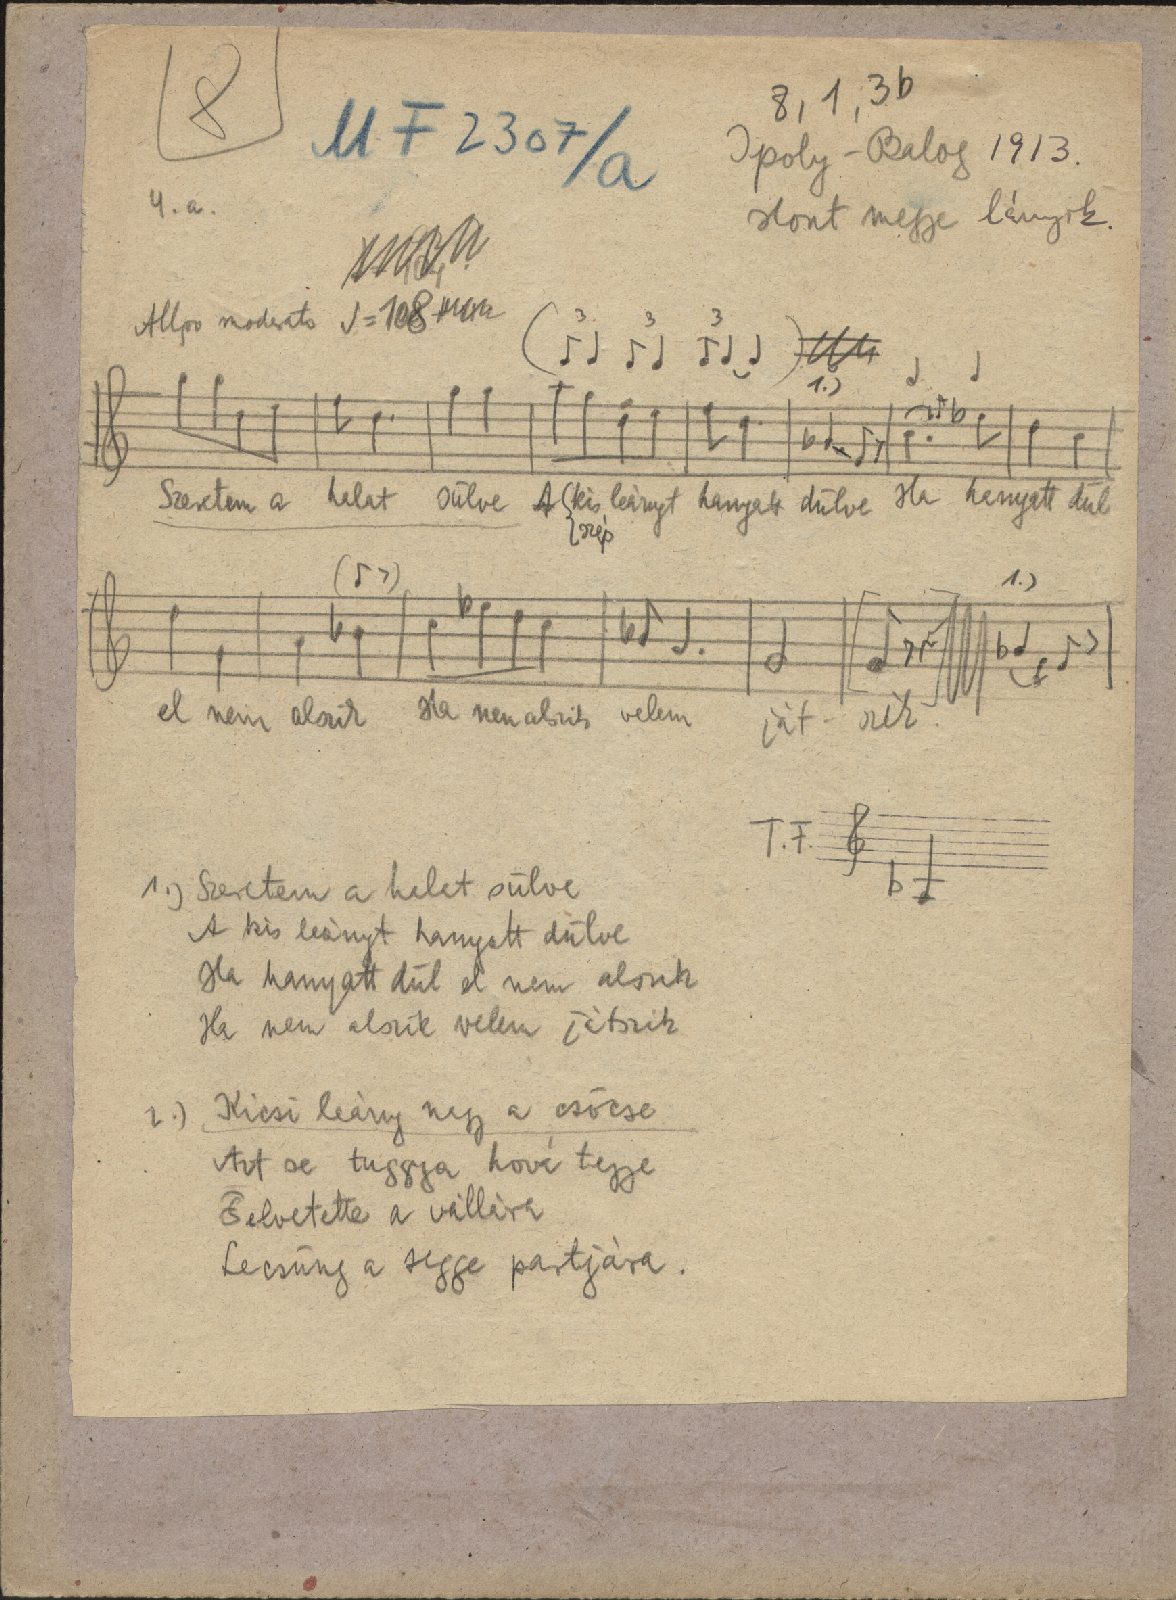 8
MF 2307/a
8, 1, 3b
Ipoly-Balog 1913.
Hont megye lányok.
4. a.
Allgro moderato ♩=108
(3 3 3)
1.)
Szeretem a halat sülve A {kis leányt hanyatt dülve Ha hanyatt dül
{szép
1.)
el nem alszik Ha nem alszik velem ját-szik.
T.F.
1.) Szeretem a halat sülve
A kis leányt hanyatt dülve
Ha hanyatt dül el nem alszik
Ha nem alszik velem játszik
2.) Kicsi leány nagy a csöcse
Azt se tuggya hová tegye
Felvetette a vállára
Lecsüng a segge partjára.